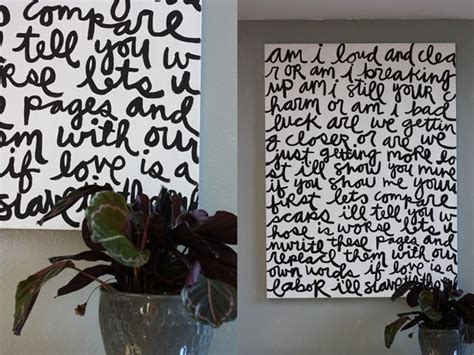 compare
tell you w
rse lets u
pages and
em with our
if love is a
slave
am i loud and clea
r or am i breaking
up am i still your
harm or am i bad
luck are we gettin
g closer or are we
just getting more lo
st ill show you mine
if you show me your
first lets compare
scars i'll tell you w
hose is worse lets u
nwrite these pages and
replace them with our
own words if love is a
labor i'll slave